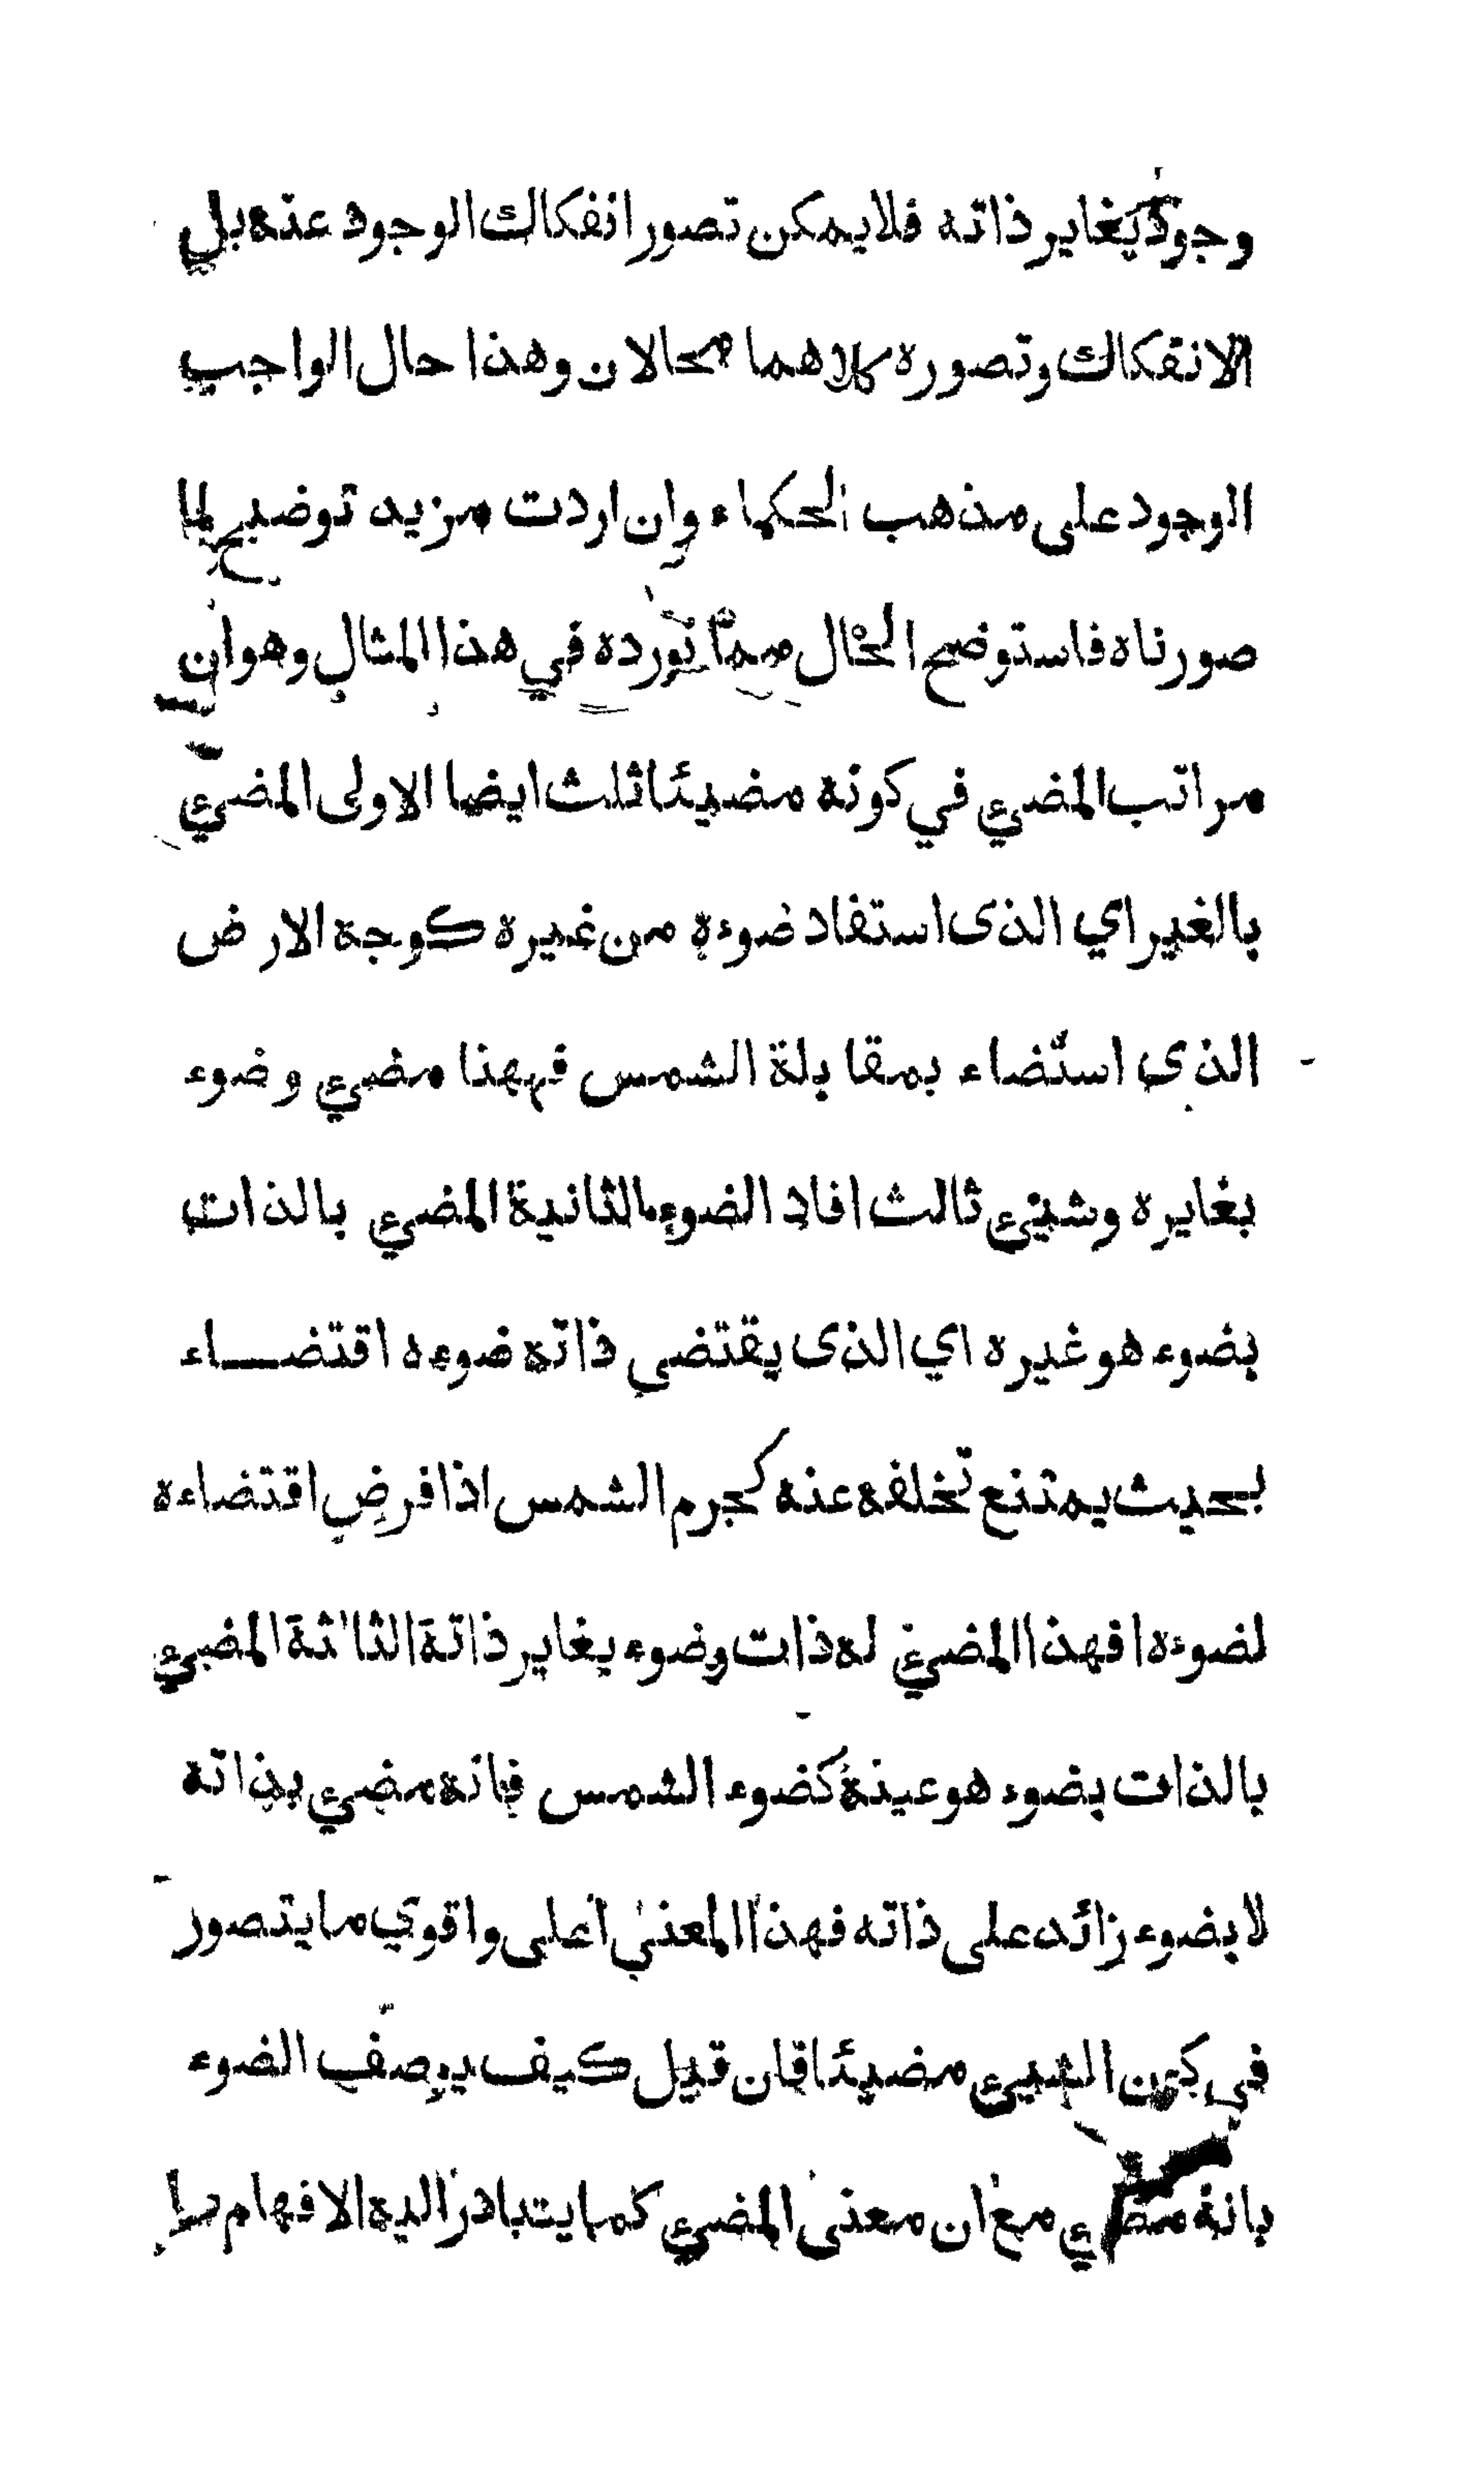 وجود يغاير ذاته فلا يمكن تصور انفكاك الوجود عنه بل
الانفكاك وتصوره كلاهما محالان وهذا حال الواجب
الوجود على مذهب الحكماء وان اردت مزيد توضيح لما
صورناه فاستوضح الحال مما نورده في هذا المثال وهو ان
مراتب المضيئ في كونه مضيئا ثلث ايضا الاولى المضيئ
بالغير اي الذى استفاد ضوءه من غيره كوجه الارض
الذي استضاء بمقابلة الشمس فههنا مضيئ وضوء
يغايره وشيئ ثالث افاد الضوء الثانية المضيئ بالذات
بضوء هو غيره اي الذى يقتضي ذاته ضوءه اقتضاء
بحيث يمتنع تخلفه عنه كجرم الشمس اذا فرض اقتضاءه
لضوءه فهذا المضيئ له ذات وضوء يغاير ذاته الثالثة المضيئ
بالذات بضوء هو عينه كضوء الشمس فانه مضيئ بذاته
لا بضوء زائد على ذاته فهذا المعنى اعلى واقوي ما يتصور
في كون الشيئ مضيئا فان قيل كيف يوصف الضوء
بانه مضيئ مع ان معنى المضيئ كما يتبادر اليه الافهام ما